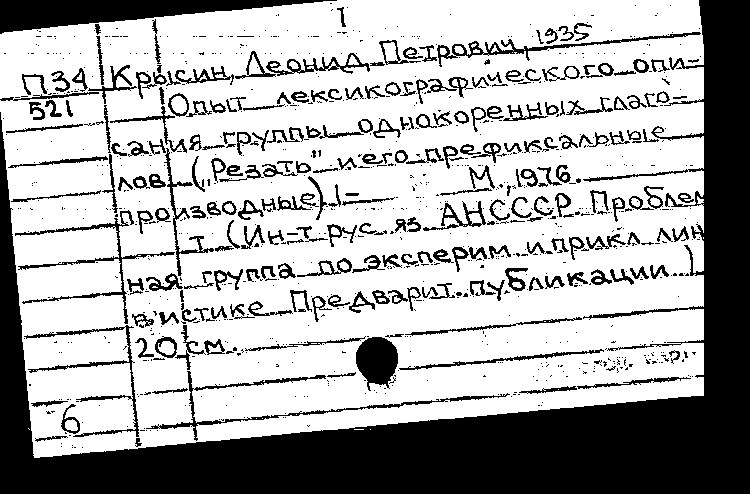 I
П34 Крысин, Леонид Петрович, 1935
521 Опыт лексикографического опи-
сания группы однокоренных глаго-
лов („Резать" и его префиксальные
производные) 1- М., 1976.
т (Ин-т рус яз. АНСССР. Проблем
ная группа по эксперим и прикл лин
вистике Предварит. публикации)
20 см.
6